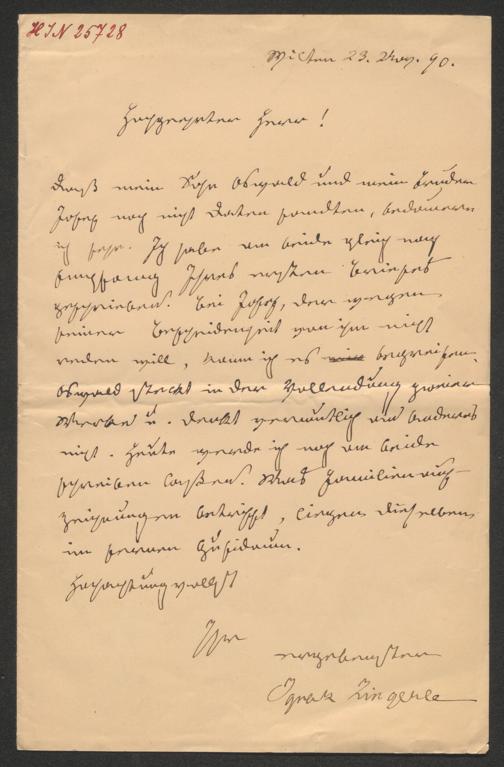 HIN 25728
Wilten 23. Nov. 90.
Hochgeehrter Herr!
Daß mein Sohn Oswald und mein Bruder
Josef noch nicht Daten sandten, bedauere
ich sehr. Ich habe an beide gleich nach
Empfang Ihres ersten Briefes
geschrieben. Bei Josef, der wegen
seiner Bescheidenheit von ihm nicht
reden will, kann ich es begreifen.
Oswald steckt in der Vollendung zweier
Werke u. denkt vermutlich an anderes
nicht. Heute werde ich noch an beide
schreiben laßen. Was Familienauf-
zeichnungen betrifft, liegen dieselben
im fernen
Hochachtungsvollst
Ihr
ergebenster
Ignaz Zingerle